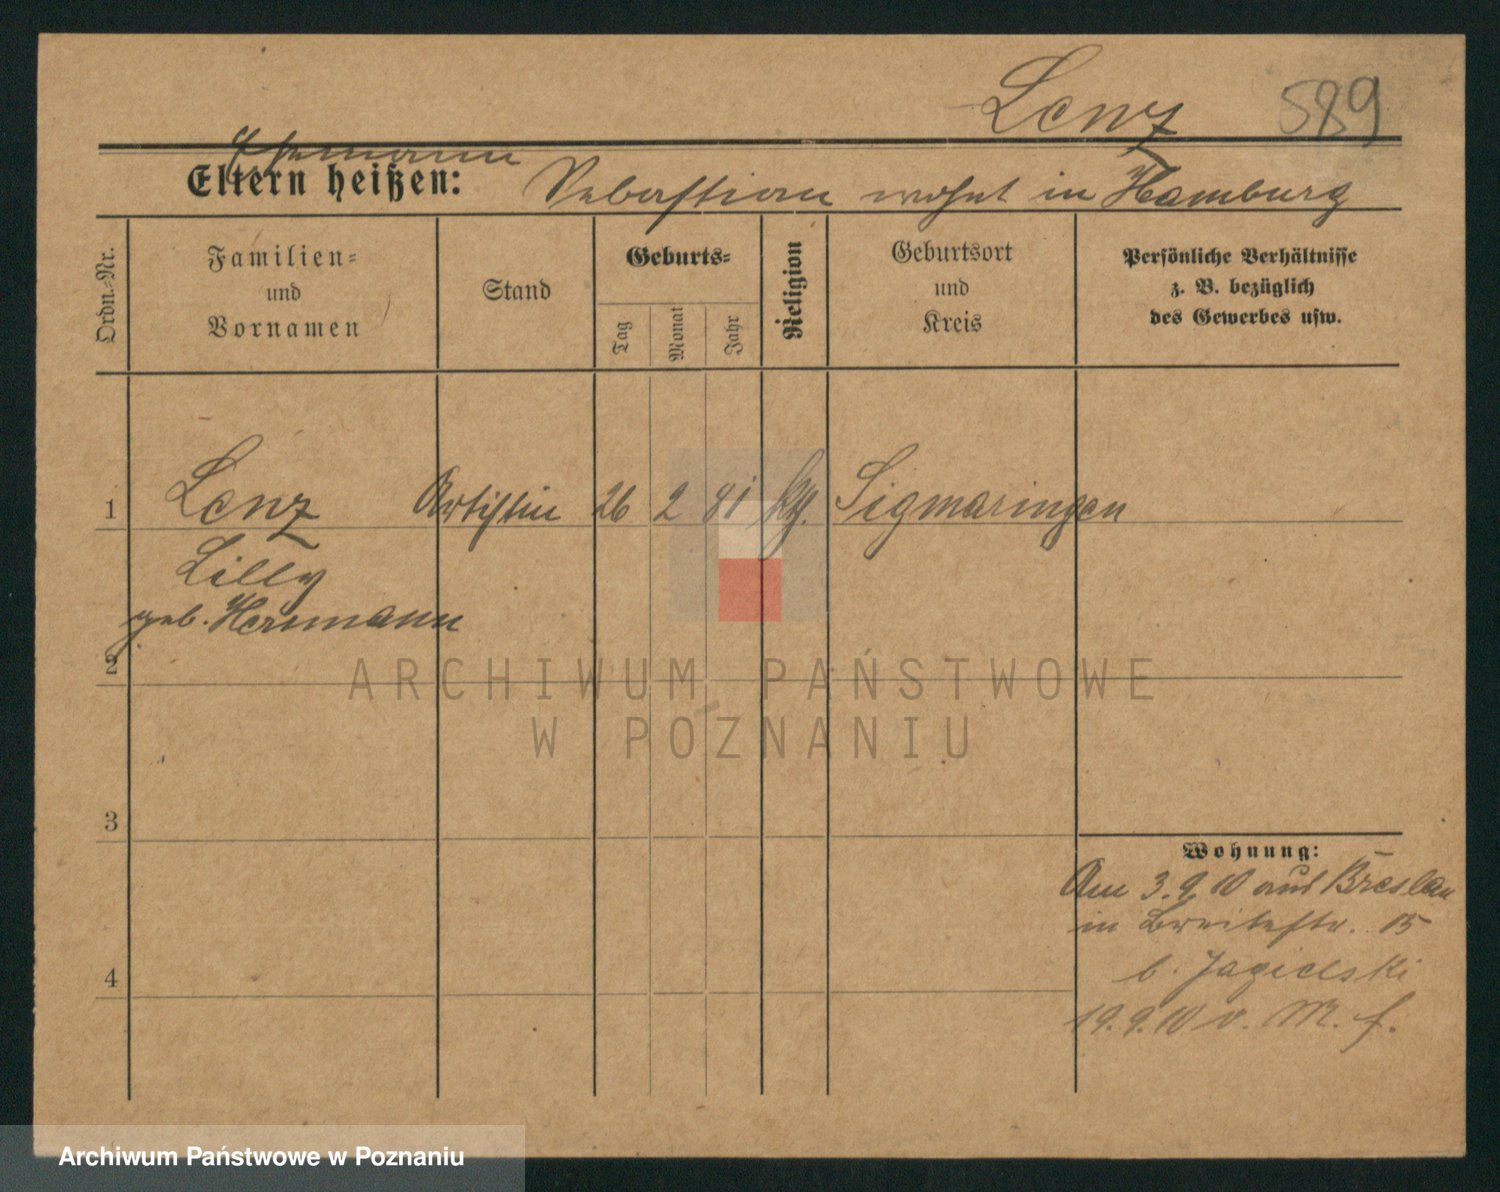 Lenz 589
Ehemann
Eltern heißen: Sebastian wohnt in Hamburg
Ordn.-Nr.
Familien-
und
Vornamen
Stand
Geburts-
Tag
Monat
Jahr
Religion
Geburtsort
und
Kreis
Persönliche Verhältnisse
z. B. bezüglich
des Gewerbes usw.
1 Lenz Artistin 26 2 81 kth. Sigmaringen
Lilly
geb. Hermann
2
ARCHIWUM PAŃSTWOWE
W POZNANIU
3
Wohnung:
Am 3.9.10 aus Breslau
in Breitestr. 15
4
b. Jagielski
19.9.10 v. M. f.
Archiwum Państwowe w Poznaniu